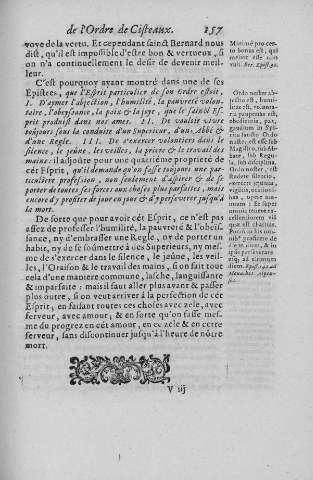 de l'Ordre de Cisteaux. 157
voye de la vertu. Et cependant sainct Bernard nous
dist, qu'il est impossible d'estre bon & vertueux, si
on n'a continuellement le desir de devenir meil-
leur.
C'est pourquoy ayant montré dans une de ses
Epistres, que l'Esprit particulier de son Ordre estoit,
I. D'aymer l'abjection, l'humilité, la pauvreté volon-
taire, l'obeyssance, la paix & la joye, que le sainct Es-
prit produit dans nos ames. II. De vouloir vivre
toûjours sous la conduite d'un Superieur, d'un Abbé &
d'une Regle. III. De s'exercer volontiers dans le
silence, le jeûne, les veilles, la priere & le travail des
mains: il adjoûte pour une quatriéme proprieté de
cét Esprit, qu'il demande qu'on fasse toûjours une par-
ticuliere profession, non seulement d'aspirer & de se
porter de toutes ses forces aux choses plus parfaites, mais
encore d'y profiter de jour en jour & d'y perseverer jusqu'à
la mort.
De sorte que pour avoir cét Esprit, ce n'est pas
assez de professer l'humilité, la pauvreté & l'obeïs-
sance, ny d'embrasser une Regle, ny de porter un
habit, ny de se soûmetre à des Superieurs, ny mes-
me de s'exercer dans le silence, le jeûne, les veil-
les, l'Oraison & le travail des mains, si on fait tout
cela d'une maniere commune, lasche, languissante
& imparfaite: mais il faut aller plus avant & passer
plus outre, si on veut arriver à la perfection de cét
Esprit, en faisant toutes ces choses avec zele, avec
ferveur, avec amour, & en sorte qu'on fasse mes-
me du progrez en cét amour, en ce zele & en cette
ferveur, sans discontinuer jusqu'à l'heure de nôtre
mort.
V iij
Minimè pro cer-
to bonus est, qui
melior esse non
vult. Ber. Epist. 91.
Ordo noster ab-
jectio est, humi-
litas est, volunta-
ria paupertas est,
obedientia, pax,
gaudium in Spi-
ritu sancto. Ordo
noster est, esse sub
Magistro, sub Ab-
bate, sub Regu-
la, sub disciplina.
Ordo noster, est
studere silentio,
exerceri jejuniis,
vigiliis, orationi-
bus, opere ma-
nuum: & super
omnia
excellentiorem vi-
am tenere,
quæ est charitas.
Porro in his om-
nibus proficere
de die in diem, & in
ipsis perseverare
usque ad ultimum
diem.